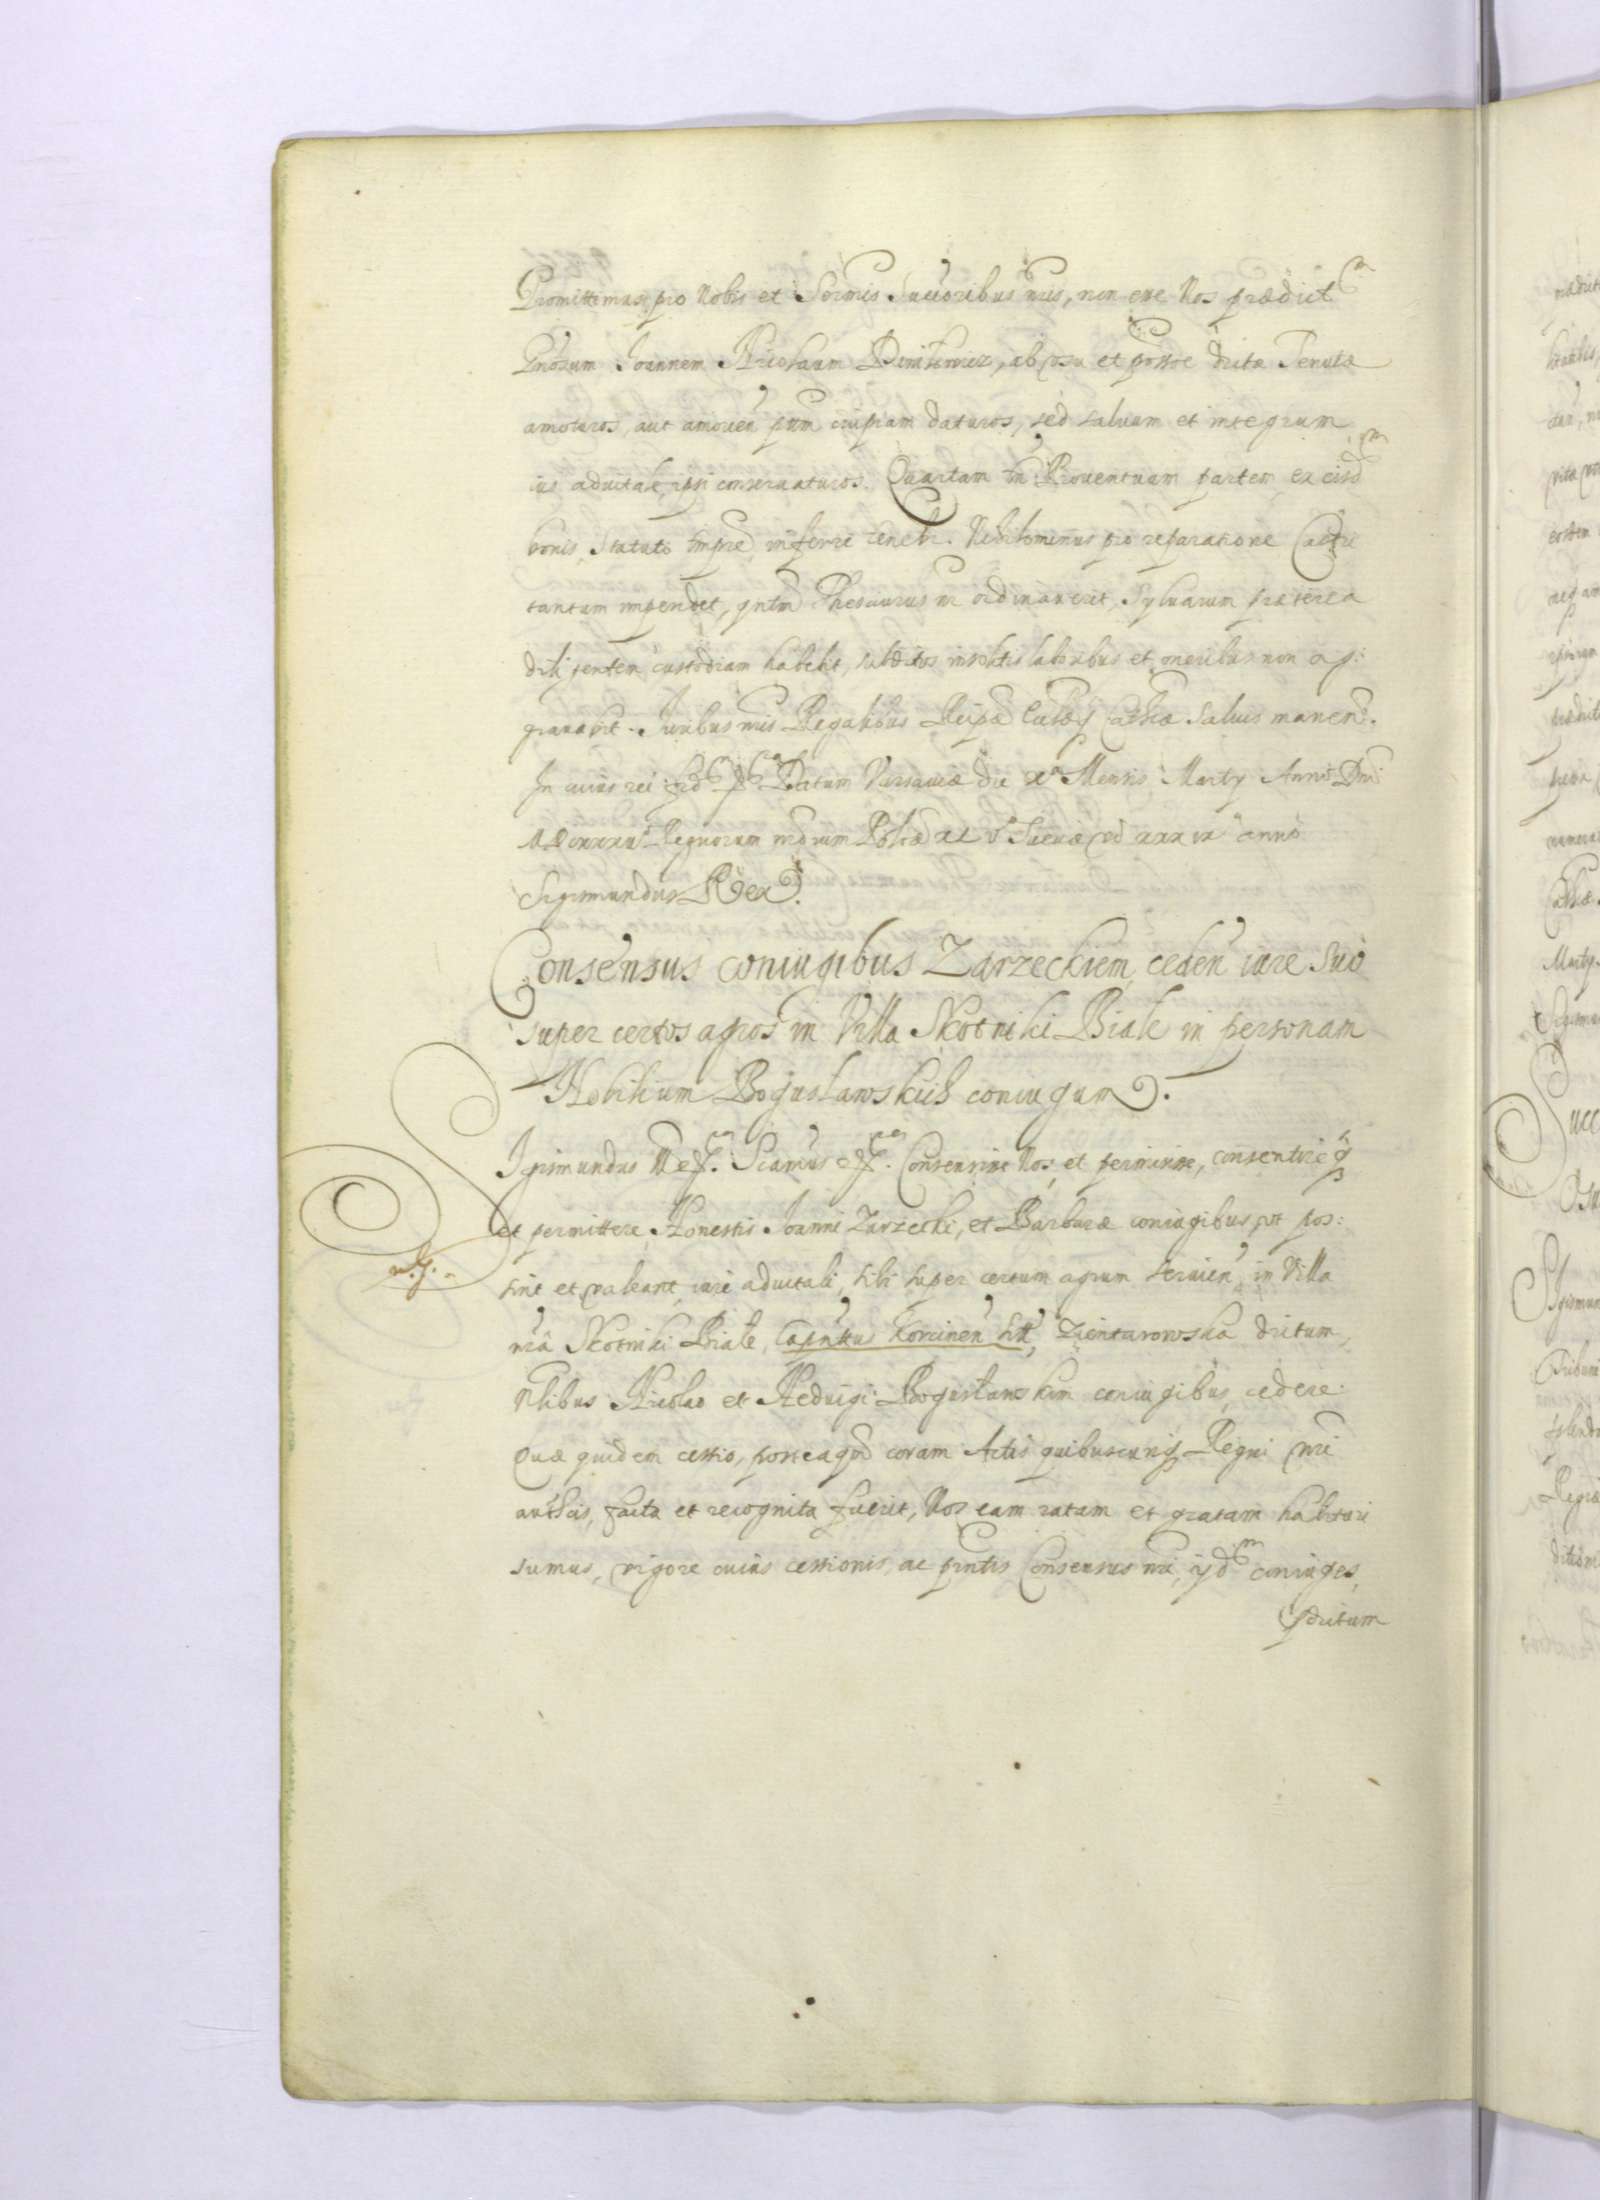 Promittimusq pro Nobis et Sermis Succoribus nris, non ee Nos prædict
Gnosum Joannem Nicolaum, ab usu et possne dictæ Tenutæ
amoturos, aut amouen ptem cuipiam daturos, sed saluum et integrum
ius aduitale ipsi conseruaturos. Quartam tn Prouentuum partem ex eisd
bonis, Statuto inferre teneb. Nihilominus pro reparatione Castri
tantum impendet, qntm Thesaurus nr ordinauerit, Syluarum præterea
diligentem custodiam habebit, subditos insolitis laboribus et oneribus non ag:
grauabit. Iuribus nris Regalibus Reipæ Ecclæq Cathcæ Saluis manen.
In cuius rei fid Datum Varsauiæ die xa Mensis Martij Anno Dni
Regnorum nrorum Poliæ xlvo Sueciæ vo xxxix anno
Sigismundus Rex.
Consensus coniugibus Zarzeckiem ceden iure Suo
super certos agros in Villa Skotniki Biale in personam
Nobilium Boguslawskich coniugum.
Igismundus III etc. Sicamus etc. Consensisse Nos, et permisisse, consentireq
et permittere Honestis Joanni Zarzecki, et Barbaræ coniugibus, ut pos:
sint et valeant, iure aduitali, sibi super certum agrum seruien, in Villa
nra Skotniki Biale, Captnttus Korcinen Sitt, Zientarowska dictum,
Nlibus Nicolao et Heduigi Boguslawskim coniugibus, cedere.
Quæ quidem cessio, posteaqd coram Actis quibuscunq Regni nri
authcis, facta et recognita fuerit, Nos eam ratam et gratam habituri
sumus, vigore cuius cessionis, ac pntis Consensus nri, ijd coniuges,
pdictum